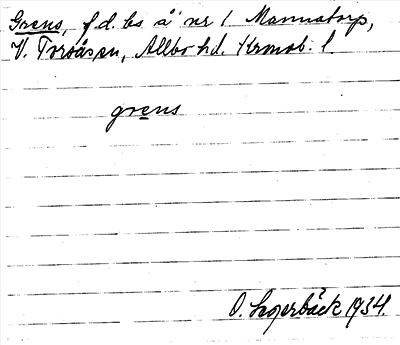 Grens, f.d. bs å nr 1 Mannatorp,
V. Torsåsen, Allbo hd. Kronob. l
grens
O. Lagerbäck 1934.